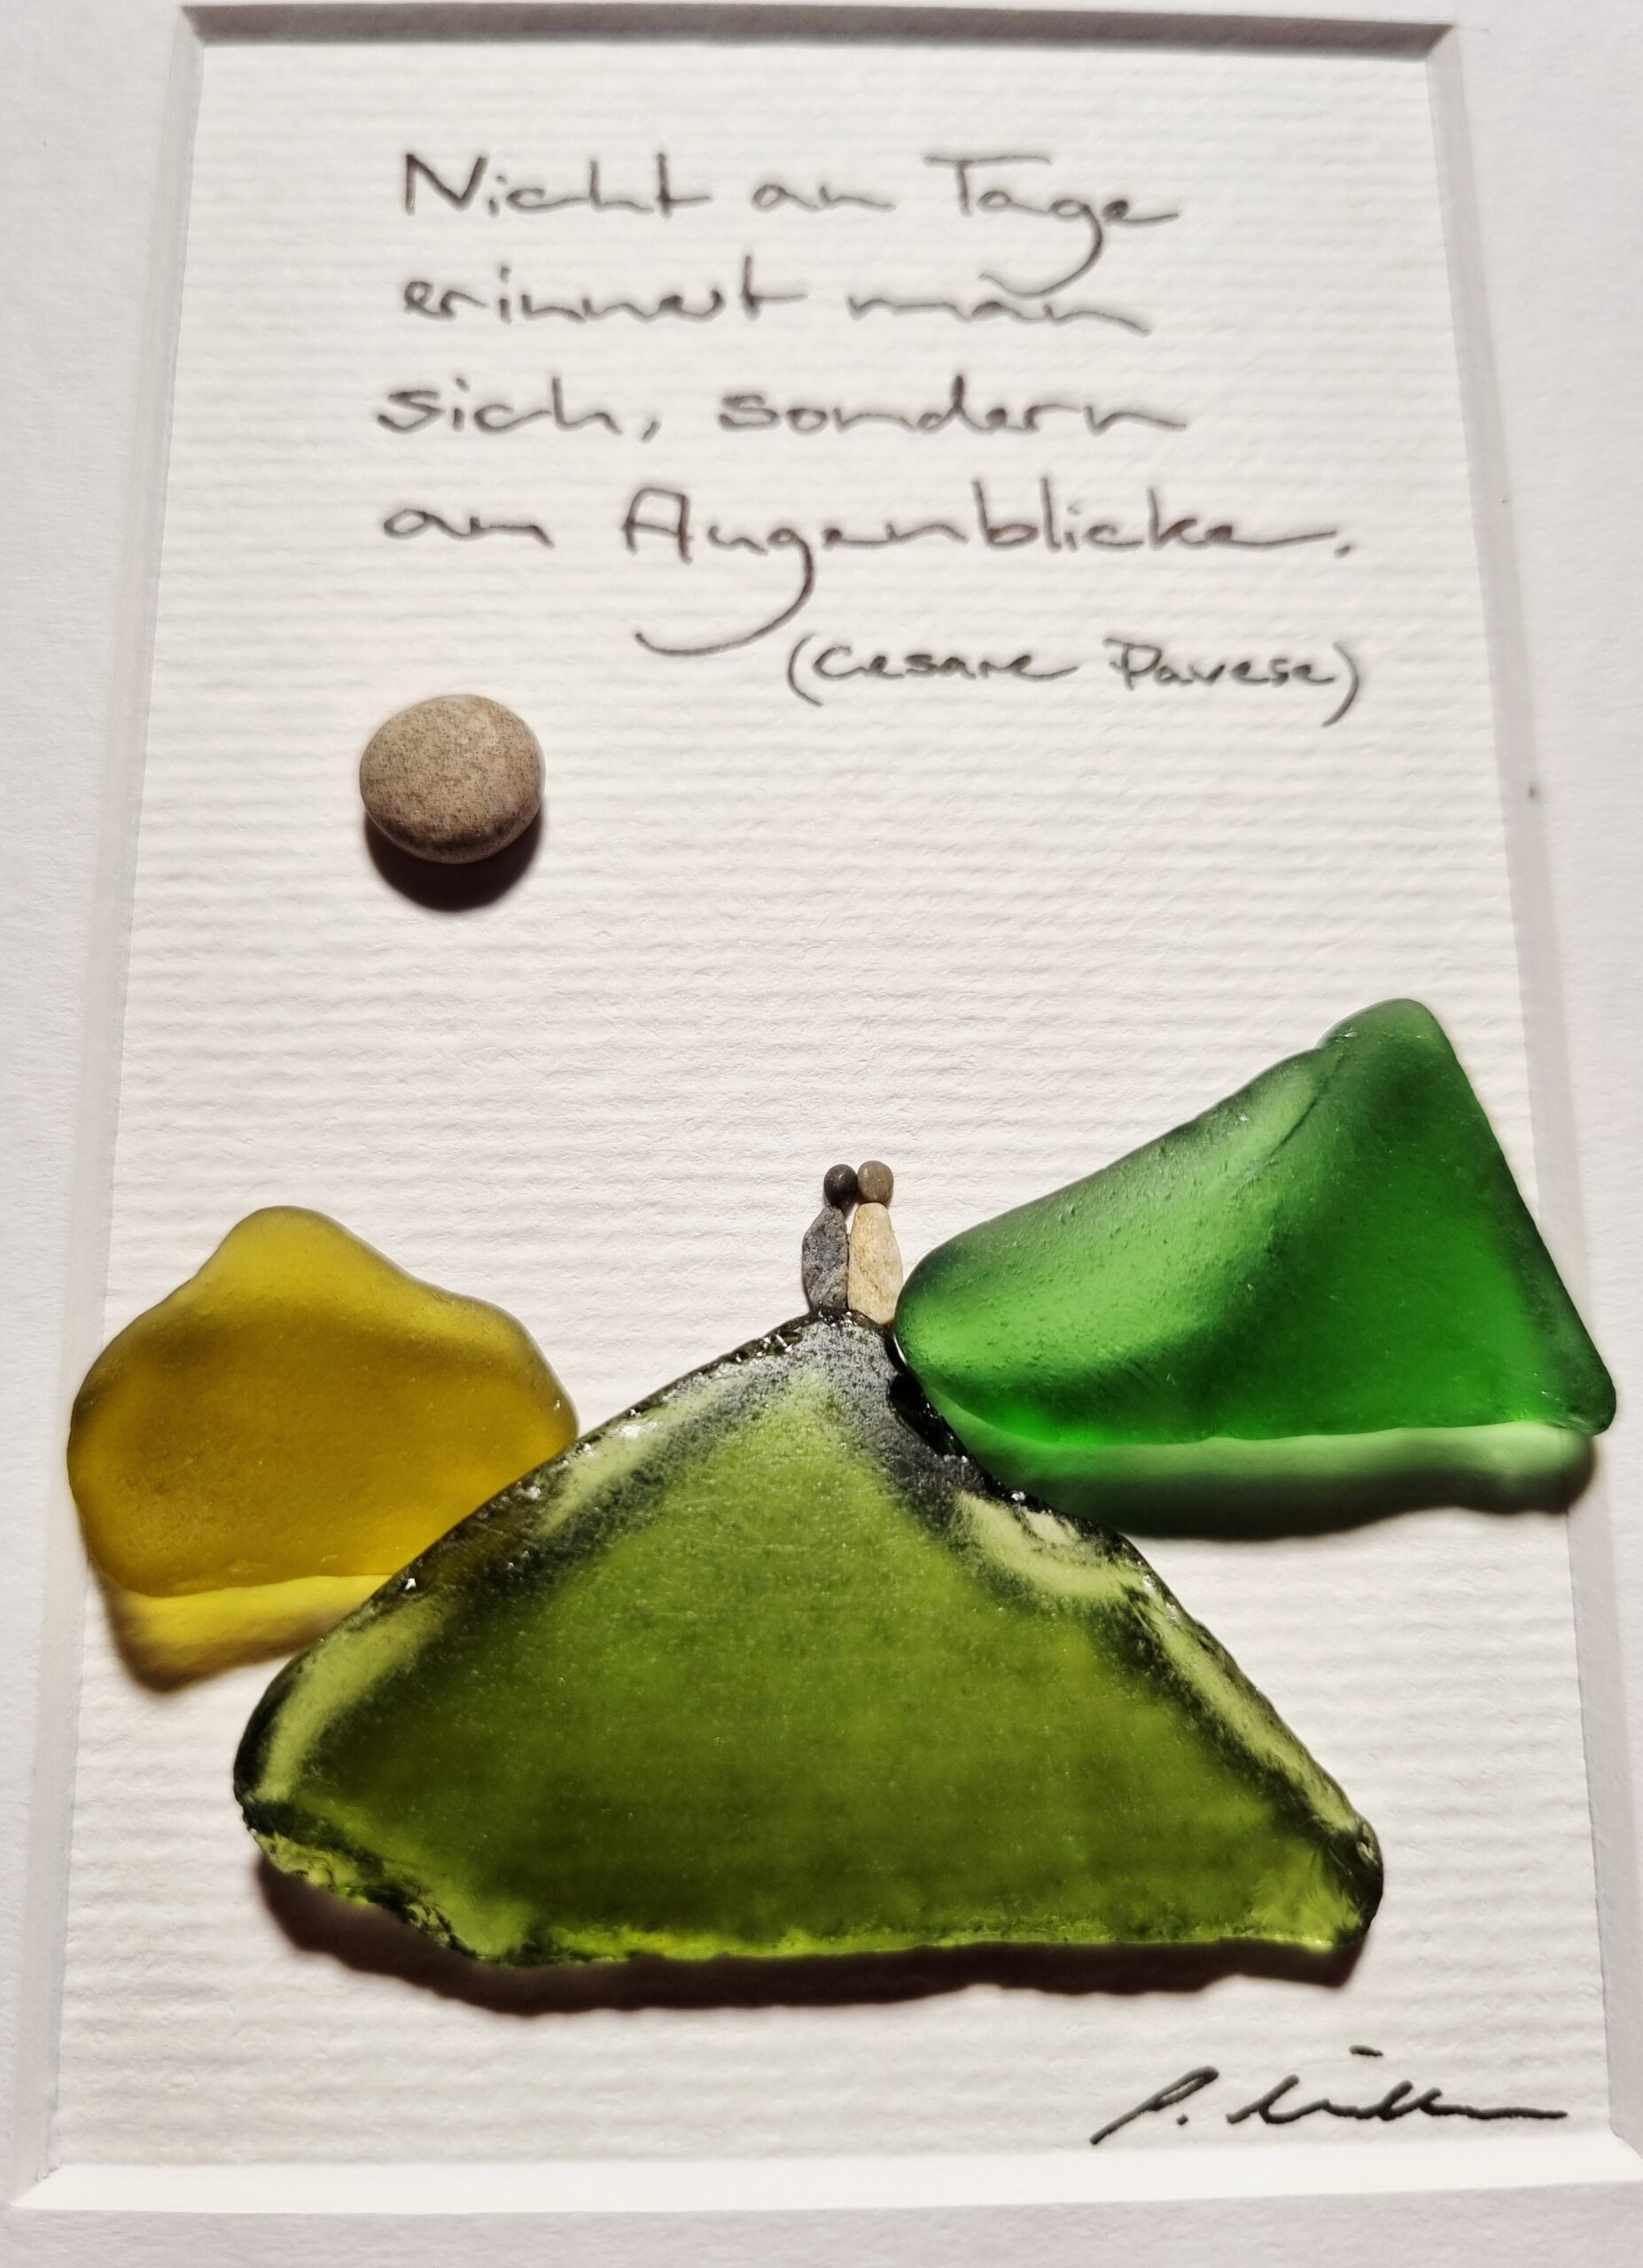 Nicht an Tage
erinnert man
sich, sondern
an Augenblicke.
(Cesare Pavese)